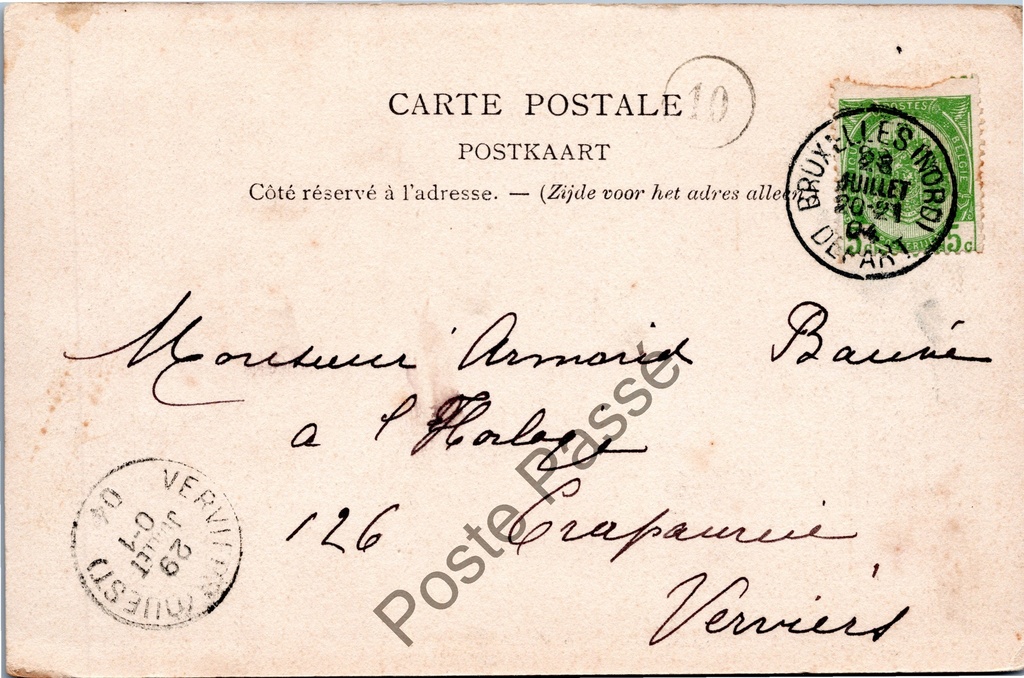 CARTE POSTALE
10
POSTKAART
Côté réservé à l'adresse. — (Zijde voor het adres alleen
POSTES
BELGIE
5c
BRUXELLES (NORD)
28
JUILLET
20-21
04
DEPART
Monsieur Armand
a l'Horloge
126 Crapaurue
Verviers
VERVIERS (OUEST)
29
JUILLET
0-1
04
Poste Passé